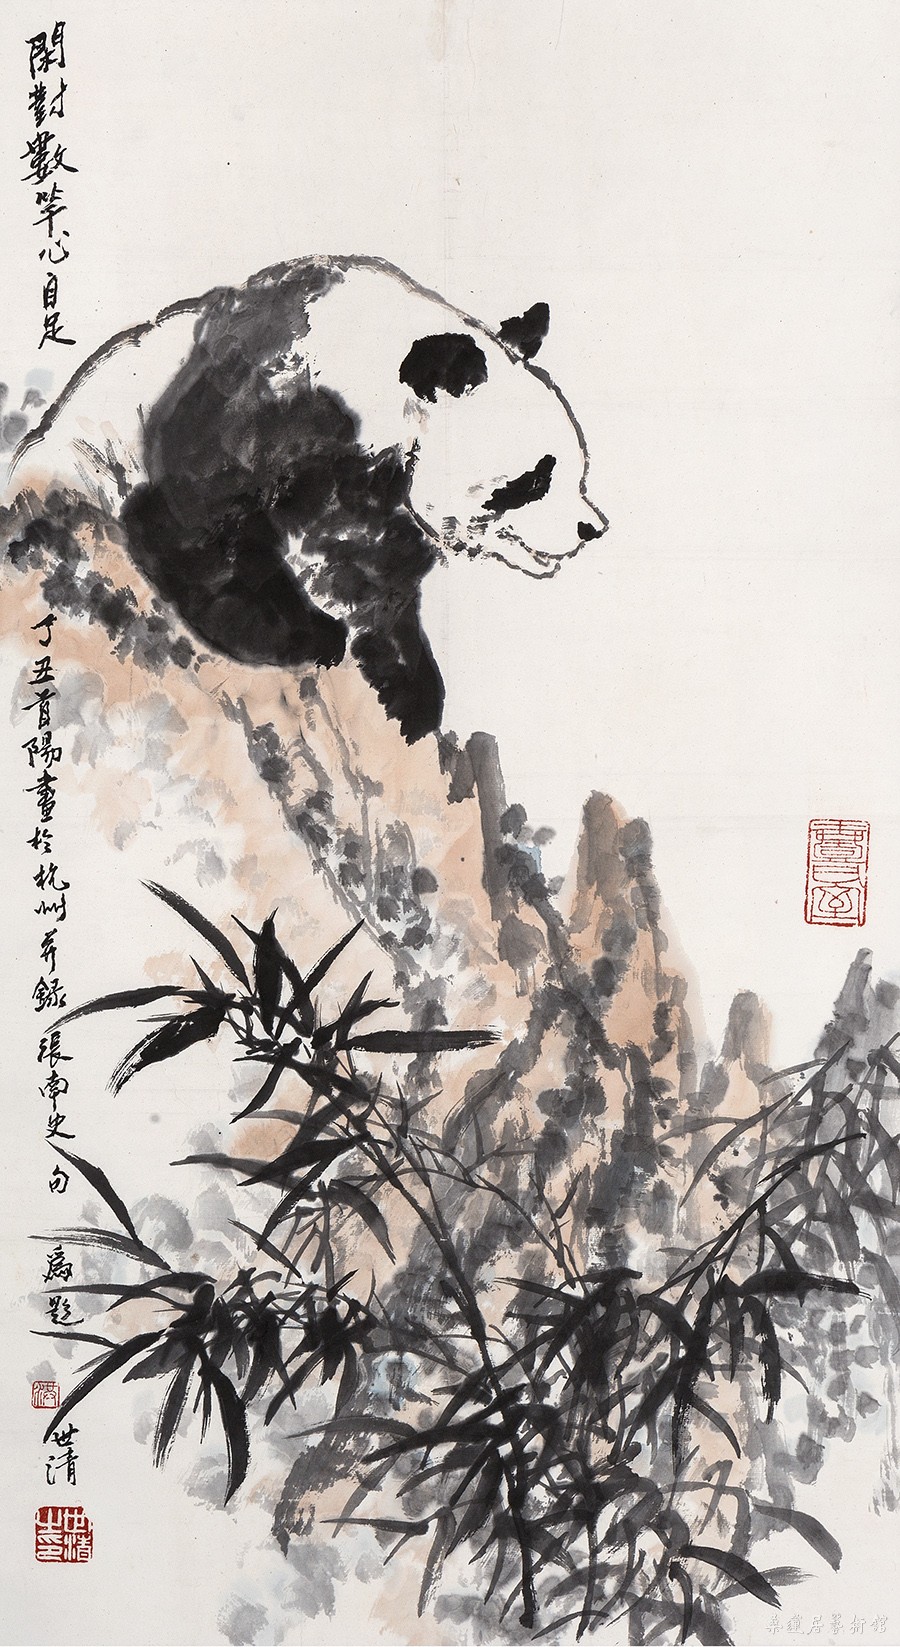 閑對數竿心自足
丁丑首陽畫於杭州并錄張南史句爲題
洪
世清
世清之印